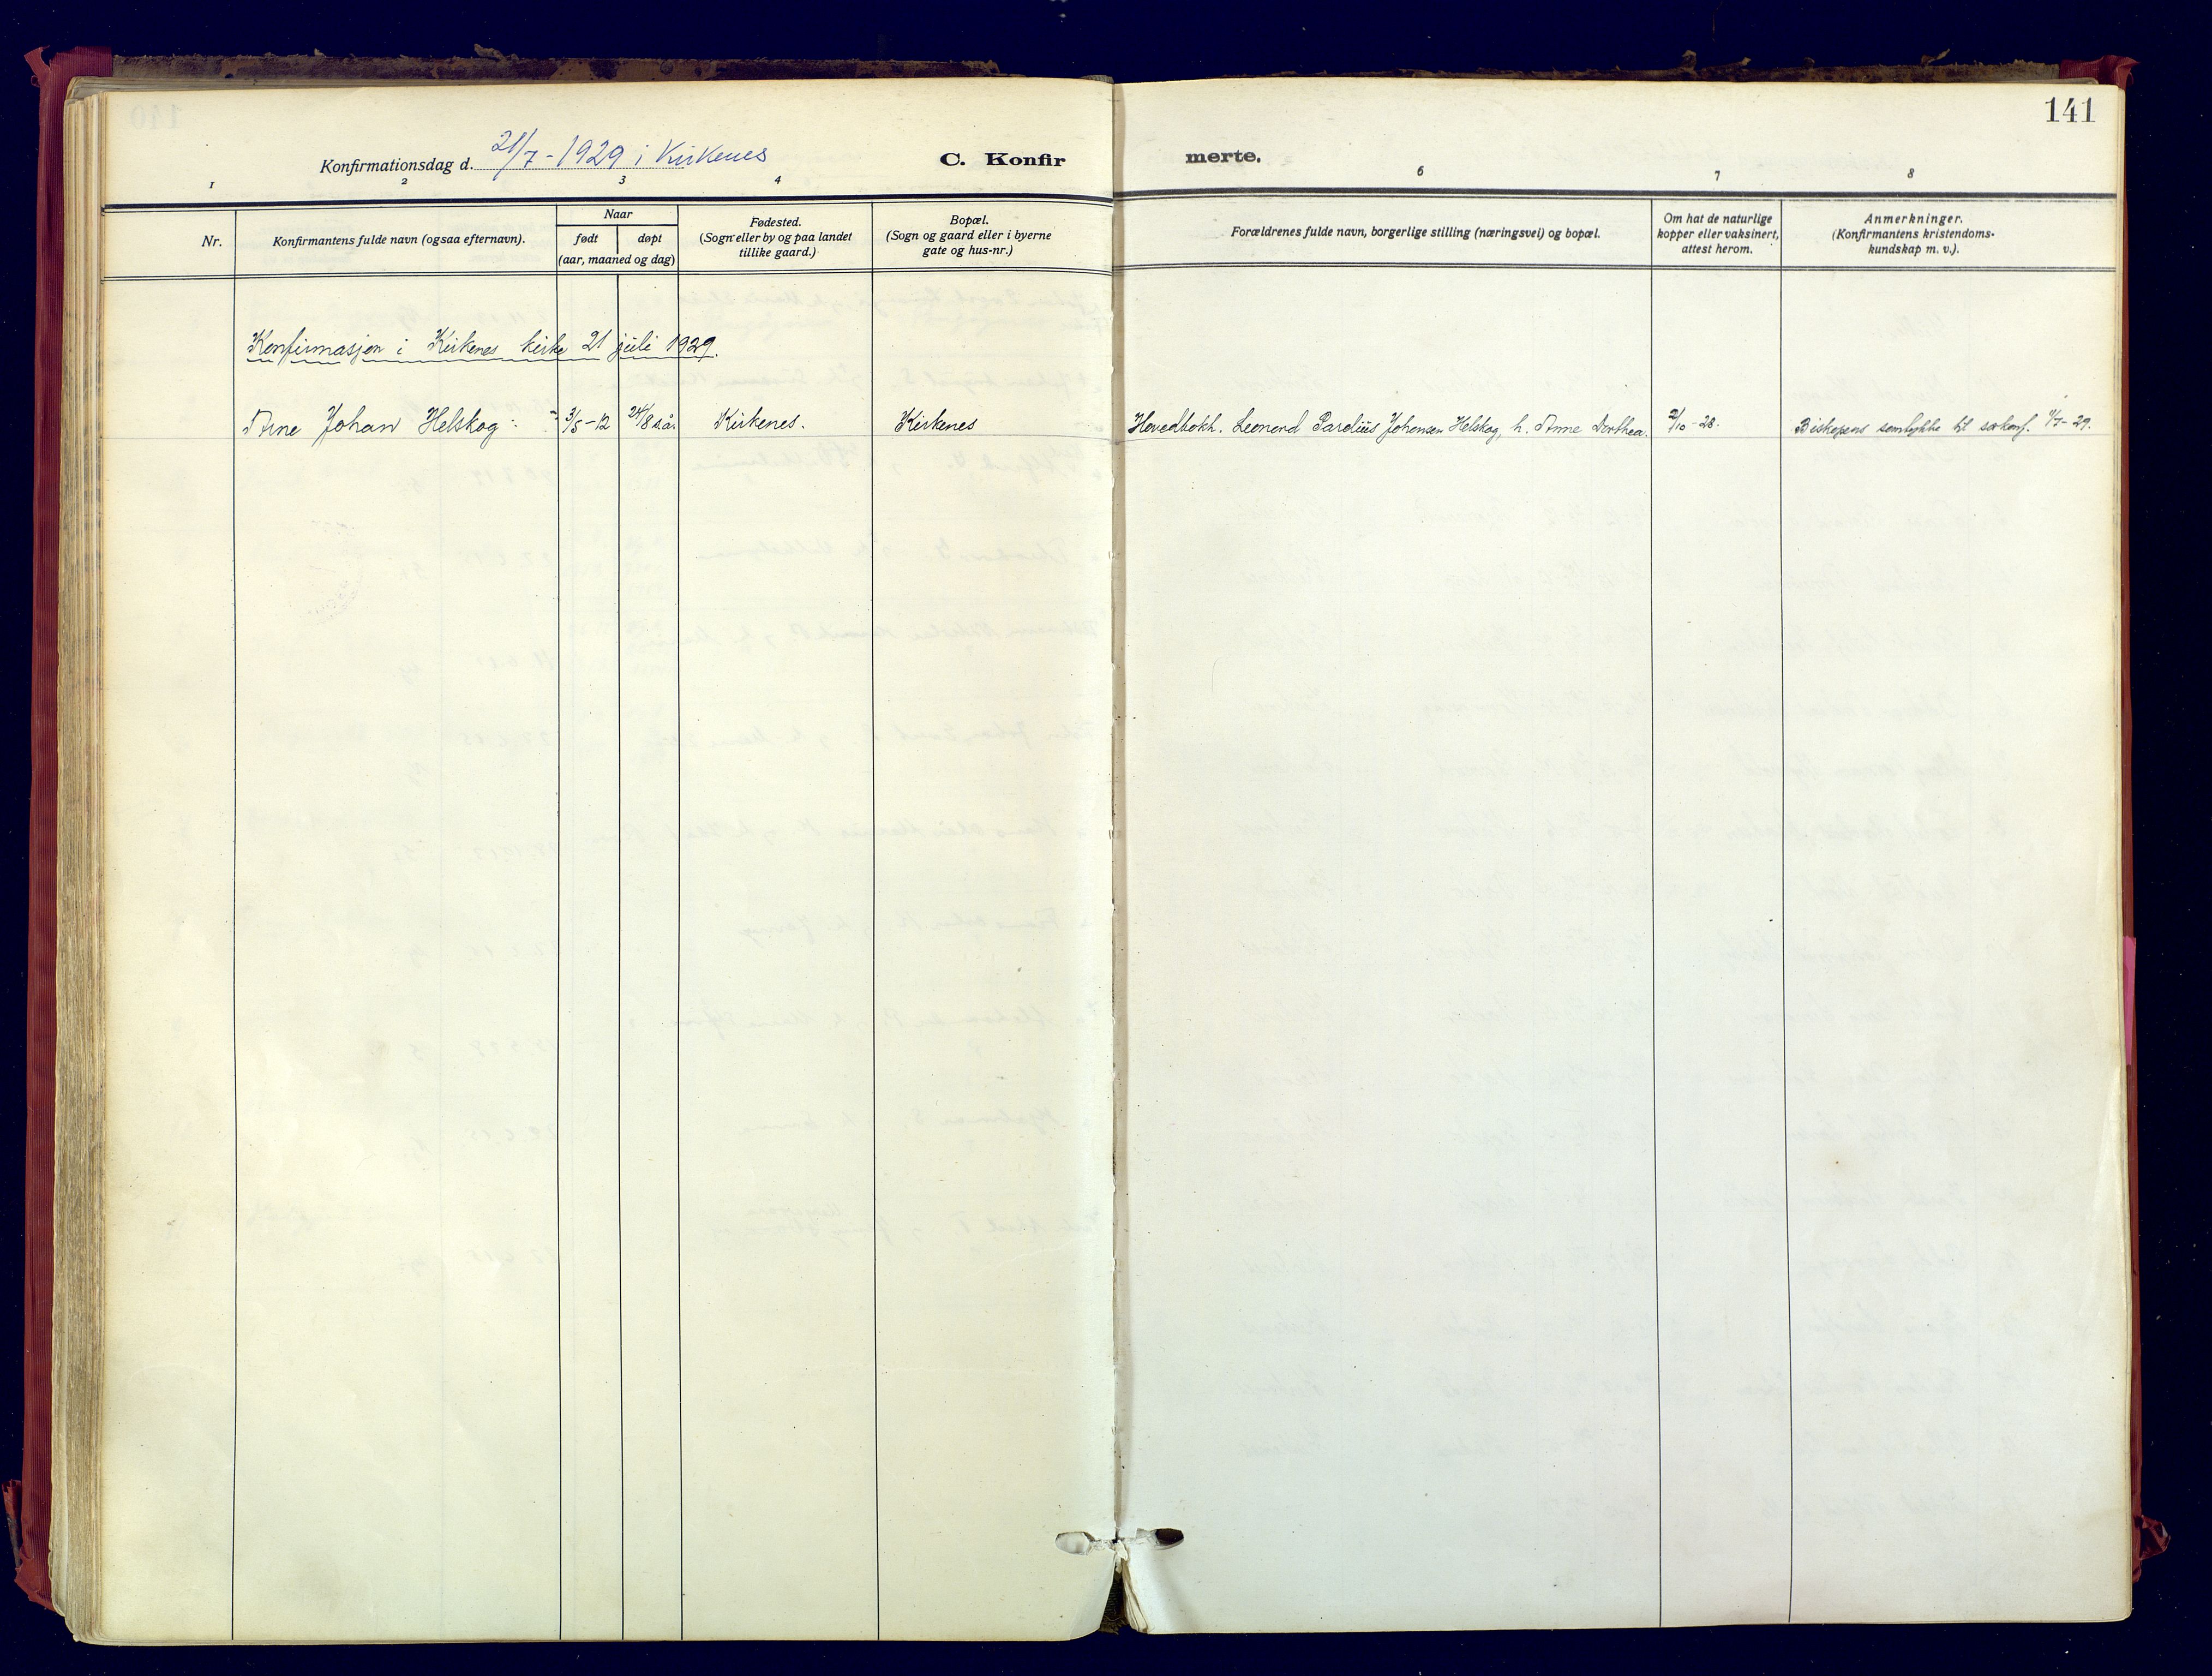 141
Konfirmationsdag d. 21/7-1929 i Kirkenes
C. Konfir
merte.
1 2 3 4 6 7 8
Nr.
Konfirmantens fulde navn (ogsaa efternavn).
Naar
født døpt
(aar, maaned og dag)
Fødested.
(Sogn eller by og paa landet
tillike gaard.)
Bopæl.
(Sogn og gaard eller i byerne
gate og hus-nr.)
Forældrenes fulde navn, borgerlige stilling (næringsvei) og bopæl.
Om hat de naturlige
kopper eller vaksinert,
attest herom.
Anmerkninger.
(Konfirmantens kristendoms-
kundskap m. v.).
Konfirmasjon i Kirkenes kirke 21 juli 1929.
Arne Johan Helskog 3/5-12 24/8 s.år. Kirkenes. Kirkenes Hovedbokh. Leonard Parelius Johansen Helskog, h. Anne Dorthea. 2/10-28. Biskopens samtykke til særkonf. 4/7-29.